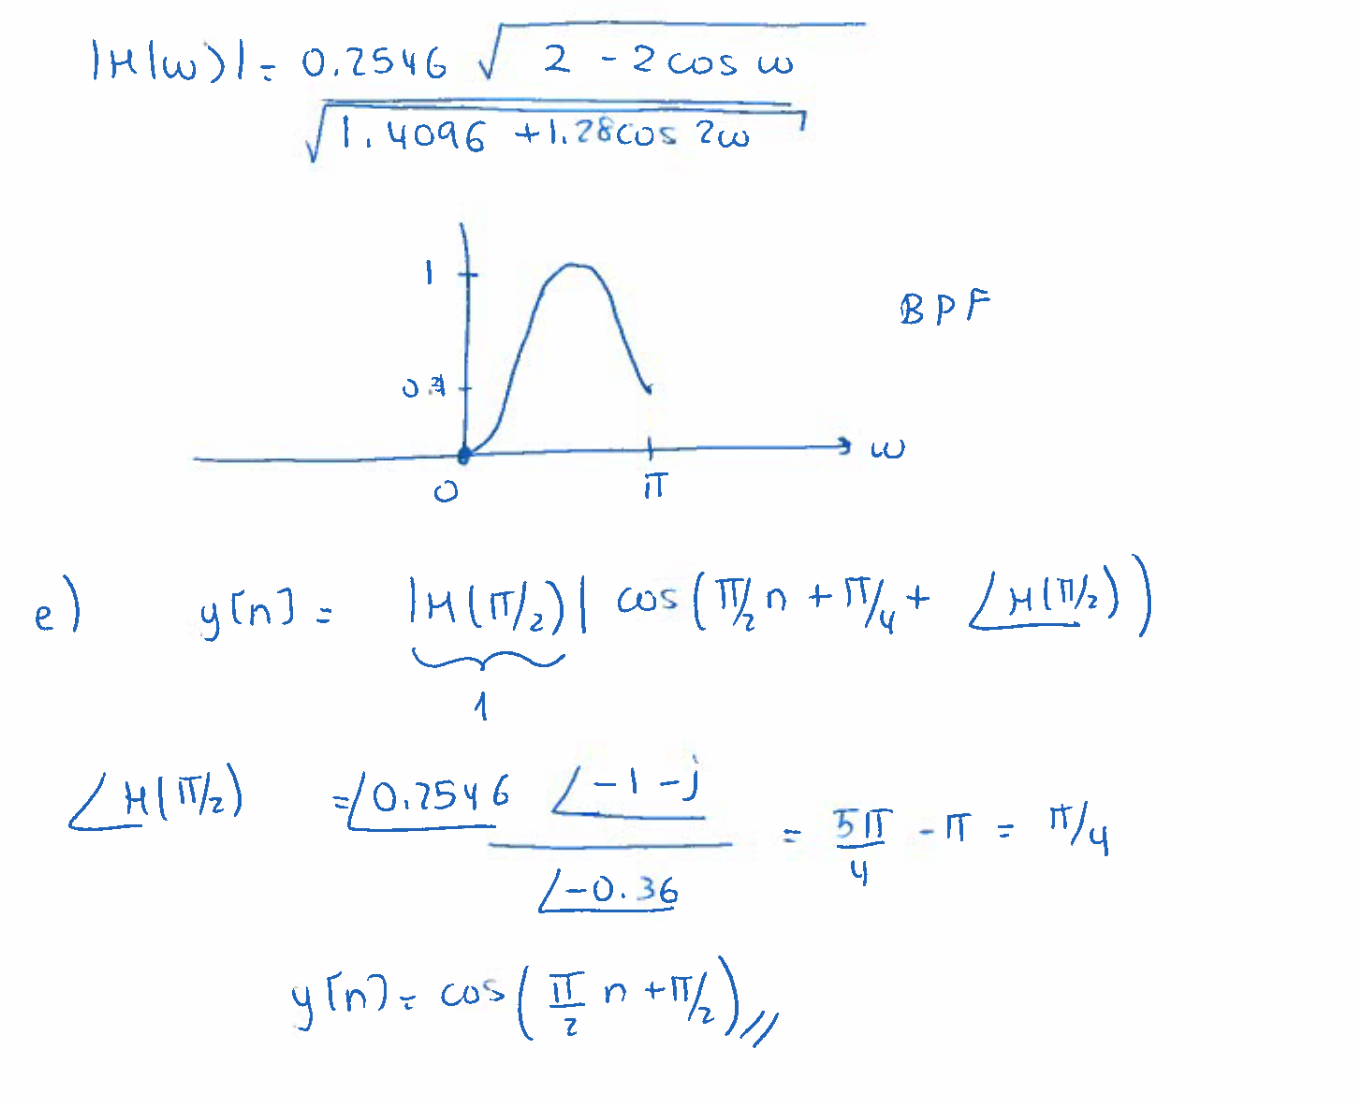 |H(ω)| = 0.2546 √(2 - 2 cos ω)
√(1.4096 + 1.28cos 2ω)
1
BPF
ω
0
π
e) y[n] = |H(π/2)| cos(π/2 n + π/4 + ∠H(π/2))
1
∠H(π/2) = ∠0.2546 ∠-1-j / ∠-0.36 = 5π/4 - π = π/4
y[n] = cos(π/2 n + π/2)//